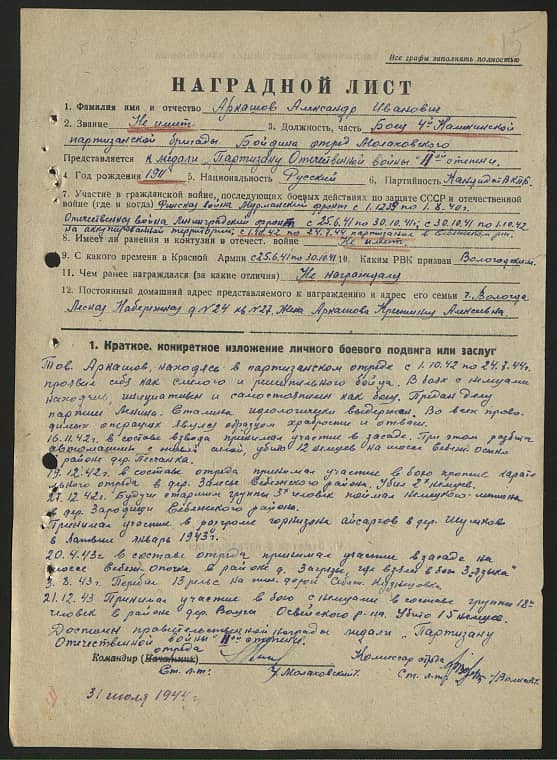 15
Все графы заполнять полностью
НАГРАДНОЙ ЛИСТ
1. Фамилия имя и отчество Аркашов Александр Иванович
2. Звание Не имеет 3. Должность, часть Боец 4й Калининской
партизанской бригады Бойдина отряд Молаковского
Представляется к медали „Партизану Отечественной войны" II степени.
4. Год рождения 1911 5. Национальность Русский 6. Партийность Кандидат ВКПб.
7. Участие в гражданской войне, последующих боевых действиях по защите СССР и отечественной
войне (где и когда) Финская война Мурманский фронт с 1.12.39 по 1.8.40г.
Отечественная война Ленинградский фронт с 25.6.41 по 30.10.41г; с 30.10.41 по 1.10.42
на оккупированной территории; с 1.10.42 по 24.7.44 партизаном в
8. Имеет ли ранения и контузии в отечест. войне Не имеет
9. С какого времени в Красной Армии с 25.6.41 по 30.10.41 10. Каким РВК призван Вологодским
11. Чем ранее награждался (за какие отличия) Не награждался
12. Постоянный домашний адрес представляемого к награждению и адрес его семьи г. Вологда
Лесная Набережная д №24 кв №27. Жена Аркашова Алексеевна.
1. Краткое, конкретное изложение личного боевого подвига или заслуг
Тов. Аркашов, находясь в партизанском отряде с 1.10.42 по 24.7.44г.
проявил себя как смелого и решительного бойца. В боях с немцами
находчив, инициативен и самостоятелен как боец. Предан делу
партии Ленина. Сталина идеологически выдержан. Во всех прово-
димых операциях являлся образцом храбрости и отваги.
16.11.42г. в составе взвода принимал участие в засаде. При этом разбита
автомашина с живой силой, убито 12 немцев на шоссе
районе дер. Песчанка.
19.12.42г. в составе отряда принимал участие в бою против карате-
льного отряда в дер. Себежского района. Убил 2х немцев.
27.12.42г. Будучи старшим группы 3х человек поймал немецкого шпиона
в дер. Зародищи Себежского района.
Принимал участие в разгроме гарнизона айсаргов в дер. Шушково
в Латвии январь 1943г.
20.4.43г в составе отряда принимал участие в засаде на
шоссе Себеж-Опочка в районе д. где взяли в бою 3 „языка"
3.8.43г Перебил 13 рельс на жел. дороге Себеж
21.12.43 Принимал участие в бою с немцами в составе группы 18
человек в районе дер. Вологи Освейского р-на. Убито 15 немцев.
Достоин правительственной награды медали „Партизану
Отечественной войны" II степени.
отряда
Командир (Начальник) Комиссар отряда
Ст. л-т: /Молаковский/. Ст. л-т
31 июля 1944г